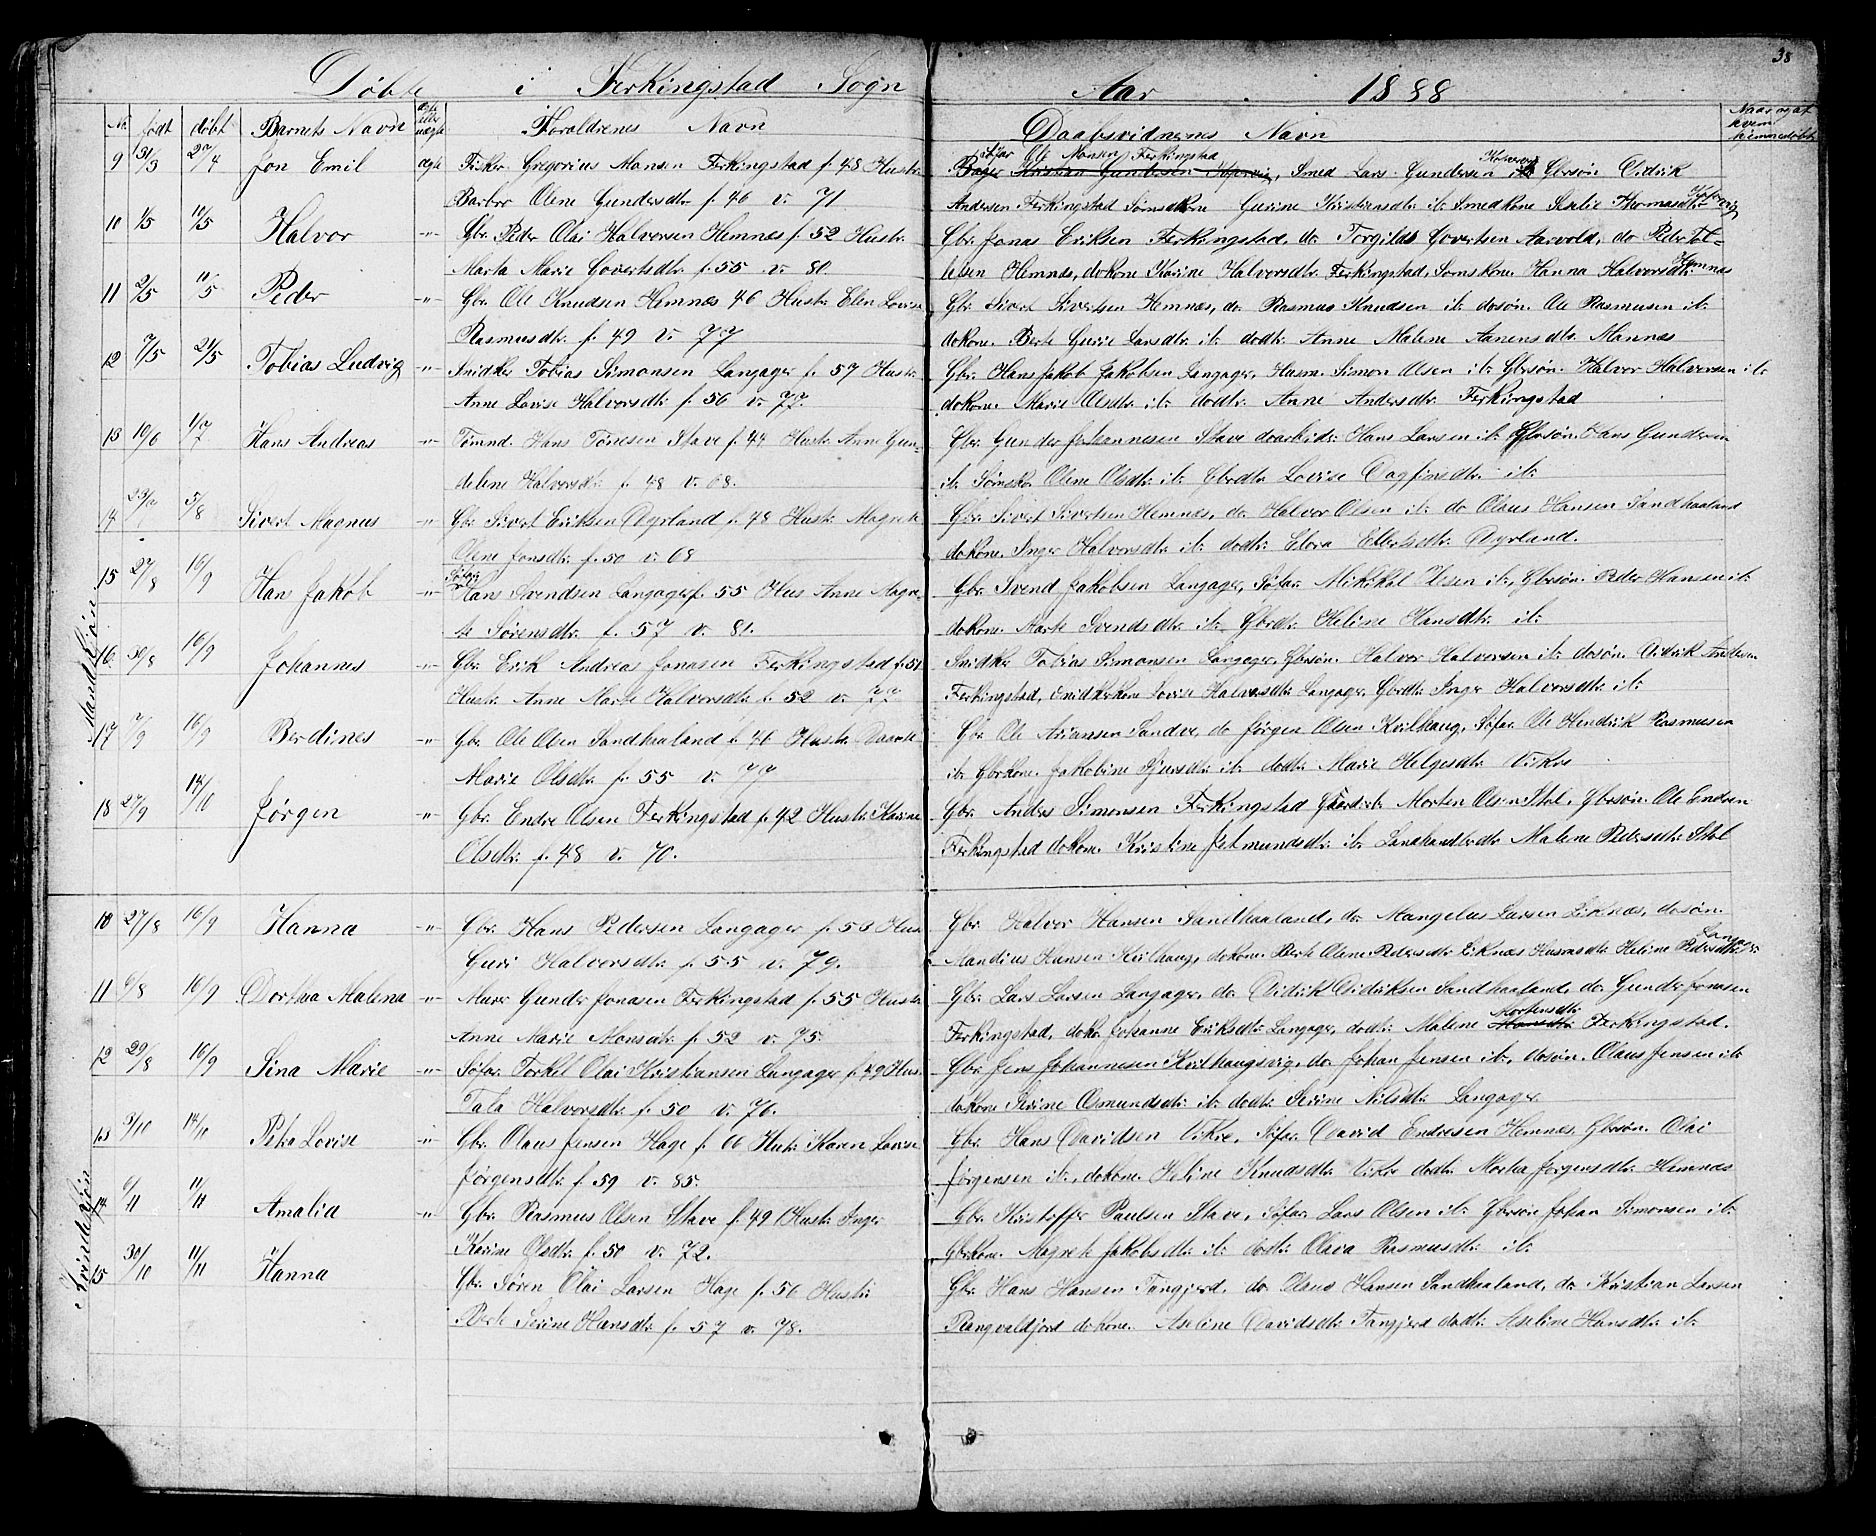 38
Döbte i Ferkingstad Sogn Aar 1888
No. født døbt Barnets Navn ægte eller uægte Foraldrenes Navn Daabsvidnernes Navn
9 31/3 27/4 Jon Emil ægte Fisker Gregorius Monsen Ferkingstad f. 48 Hustr.
Barbro Olene Gundersdtr f. 46 v. 71
Søfar Ole Monsen Ferkingstad
Smed Lars Gundersen Gbrsøn Didrik
Andersen Ferkingstad Tømdkone Gurine Kristiansdtr it. Smedkone Thomasdtr
10 1/5 10/5 Halvor -"- Gbr. Peder Olai Halvorsen Hemnæs f. 52 Hustr.
Marta Marie Govertsdtr. f. 55 v. 80
Gbr. Jonas Eriksen Ferkingstad, do Torgilds Govertsen Aarvold, do Peder Tol-
lefsen Hemnæs, dokone Karine Halvorsdtr Ferkingstad, Hanna Halvorsdtr. Hemnæs
11 2/5 11/5 Peder -"- Gbr. Ole Knudsen Hemnæs 46 Hustr. Elen Lovise
Rasmusdtr. f. 49 v. 77
Gbr. Sivert Sivertsen Hemnæs, do Rasmus Knudsen it. dosøn. Ole Rasmusen it.
dokone. Berte Gurie Larsdtr it. dodtr. Anne Malene Aanensdtr. Mannæs
12 7/5 21/5 Tobias Ludvig -"- Snidker Tobias Simonsen Langager f. 57 Hustr.
Anne Lovise Halvorsdtr f. 56 v. 77.
Gbr. Hans Jakob Jakobsen Langager, Husm. Simon Olsen it. Gbrsøn. Halvor Halvorsen it.
dokone. Marie Olsdtr. it. dodtr. Anne Andersdtr. Ferkingstad
13 10/6 1/7 Hans Andreas -"- Tømd. Hans Tønesen Stave f. 44 Hustr. Anne Gun-
delene Halvorsdtr. f. 48 v. 68.
Gbr. Gunder Johannesen Stave doarbeidr. Hans Larsen it. Gbrsøn. Hans Gundersen
it. Olene Olsdtr. it. Gbrdtr. Lovise Dagfinsdtr. it.
14 23/7 5/8 Sivert Magnus -"- Gbr. Sivert Eriksen Dyrland f. 48 Hustr. Magrete
Olene Jonsdtr. f. 50 v. 68
Gbr. Sivert Sivertsen Hemnæs, do Halvor Olsen it. do Olaus Hansen Sandhaaland
dokone. Inger Halvorsdtr it. dodtr. Elora Elbertsdtr Dyrland.
15 27/8 16/9 Hans Jakob -"- Søfar. Hans Svendsen Langager f. 55 Hus. Anne Magre-
te Sørensdtr. f. 57 v. 81.
Gbr. Svend Jakobsen Langager, Søfar. Mikkal Olsen it, Gbrsøn. Peder Hansen it.
dokone. Marte Svendsdtr it. Gbrdtr. Heline Hansdtr. it.
16 30/8 16/9 Johannes -"- Gbr. Erik Andreas Jonasen Ferkingstad f. 51
Hustr. Anne Marte Halvorsdtr. f. 52 v. 77.
Snidker Tobias Simonsen Langager, Gbrsøn. Halvor Halvorsen it. dosøn. Didrik Andersen
Ferkingstad, Snidkerkone Lovise Halvorsdtr. Langager, Gbrdtr. Inger Halvorsdtr it.
17 7/9 16/9 Berdines -"- Gbr. Ole Olsen Sandhaaland f. 46 Hustr.
Marie Olsdtr. f. 55 v. 77
Gbr. Ole Sandve, do Jørgen Olsen Kvilhaug, Søfar. Ole Hendrik Rasmusen
it. Gbrkone. Jakobine Sjursdtr. it. dodtr. Marie Helgesdtr. Vikre
18 27/9 14/10 Jørgen -"- Gbr. Endre Olsen Ferkingstad f. 42 Hustr. Karine
Olsdtr. f. 48 v. 70.
Gbr. Anders Simonsen Ferkingstad Morten Olsen Stol, Gbrsøn. Ole Endresen
Ferkingstad dokone. Kristine Jetmundsdtr. it. Landhandlerdtr. Malene Pedersdtr. Stol
Mandkjøn
10 27/8 16/9 Hanna -"- Gbr. Hans Pedersen Langager f. 53 Hus.
Guri Halvorsdtr. f. 55 v. 79.
Gbr. Halvor Hansen Sandhaaland, do Mangelus Larsen Liknæs, dosøn.
Mandius Hansen Kvilhaug, dokone. Berte Olene Pedersdtr Liknæs Husmdtr. Heline Pedersdtr. Langager
11 6/8 16/9 Dorthea Malena -"- Murer Gunder Jonasen Ferkingstad f. 55 Hustr.
Anne Marie Monsdtr. f. 52 v. 75.
Gbr. Lars Larsen Langager, do Didrik Didriksen Sandhaaland do Gunder Jonasen
Ferkingstad, dokone. Johanne Eriksdtr. Langager, dodtr. Malene Mortensdtr Ferkingstad.
12 29/8 16/9 Sina Marie -"- Søfar. Torkel Olai Kristiansen Langager f. 49 Hus.
Tala Halvorsdtr. f. 50 v. 76.
Gbr. Jens Johannesen Kvilhaugsvig, do Johan Jensen it., dosøn. Olaus Jensen it.
dokone Serine Osmundsdtr. it. dodtr. Serine Nilsdtr. Langager
13 3/10 14/10 Petra Lovise -"- Gbr. Olaus Jensen Hage f. 60 Hustr. Karen Lovise
Jørgensdtr. f. 59 v. 85.
Gbr. Hans Davidsen Vikre, Søfar. David Endresen Hemnes, Gbrsøn. Olai
Jørgensen it., dokone. Heline Knudsdtr. Vikre dodtr. Marta Jørgensdtr. Hemnæs
14 6/11 11/11 Amalia -"- Gbr. Rasmus Olsen Stave f. 49 Hustr. Inger
Karine Olsdtr. f. 50 v. 72.
Gbr. Kristoffer Paulsen Stave, Søfar. Lars Olsen it. Gbrsøn Johan Simonsen it.
Gbrkone. Magrete Jakobsdtr it. dodtr. Olava Rasmusdtr. it.
15 30/10 11/11 Hanna Gbr. Søren Olai Larsen Hage f. 56 Hustr.
Berte Serine Hansdtr. f. 57 v. 78.
Gbr. Hans Hansen Tangjerd, do Olaus Hansen Sandhaaland, do Kristian Larsen
Rangvaldjord dokone. Aseline Davidsdtr. Tangjerd dodtr. Aseline Hansdtr. it.
Kvindekjøn